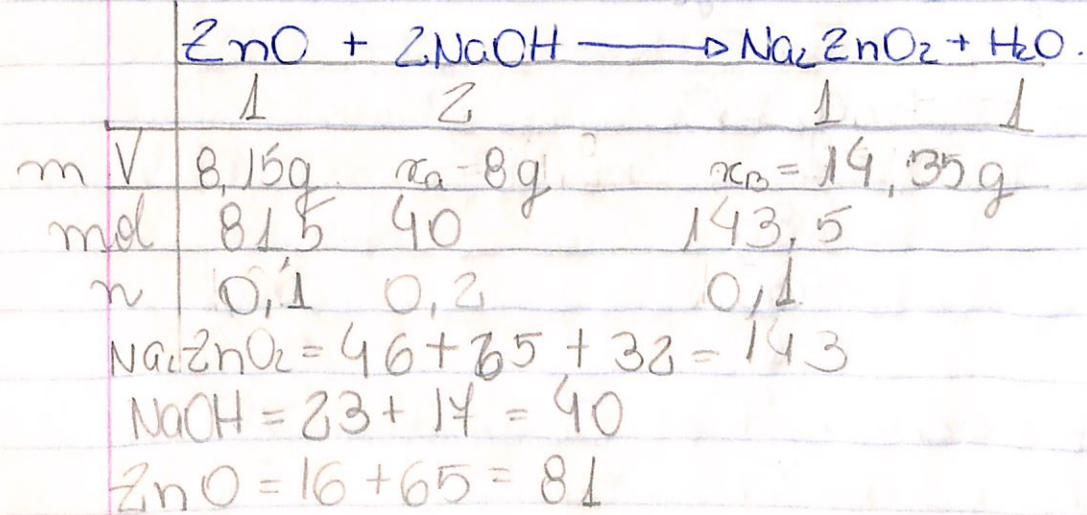 ZnO + 2NaOH → Na₂ZnO₂ + H₂O.
1 2 1 1
m V 8,15g xa - 8g xB = 14,35g
mol 815 40 143,5
n 0,1 0,2 0,1
Na₂ZnO₂ = 46 + 65 + 32 = 143
NaOH = 23 + 17 = 40
ZnO = 16 + 65 = 81